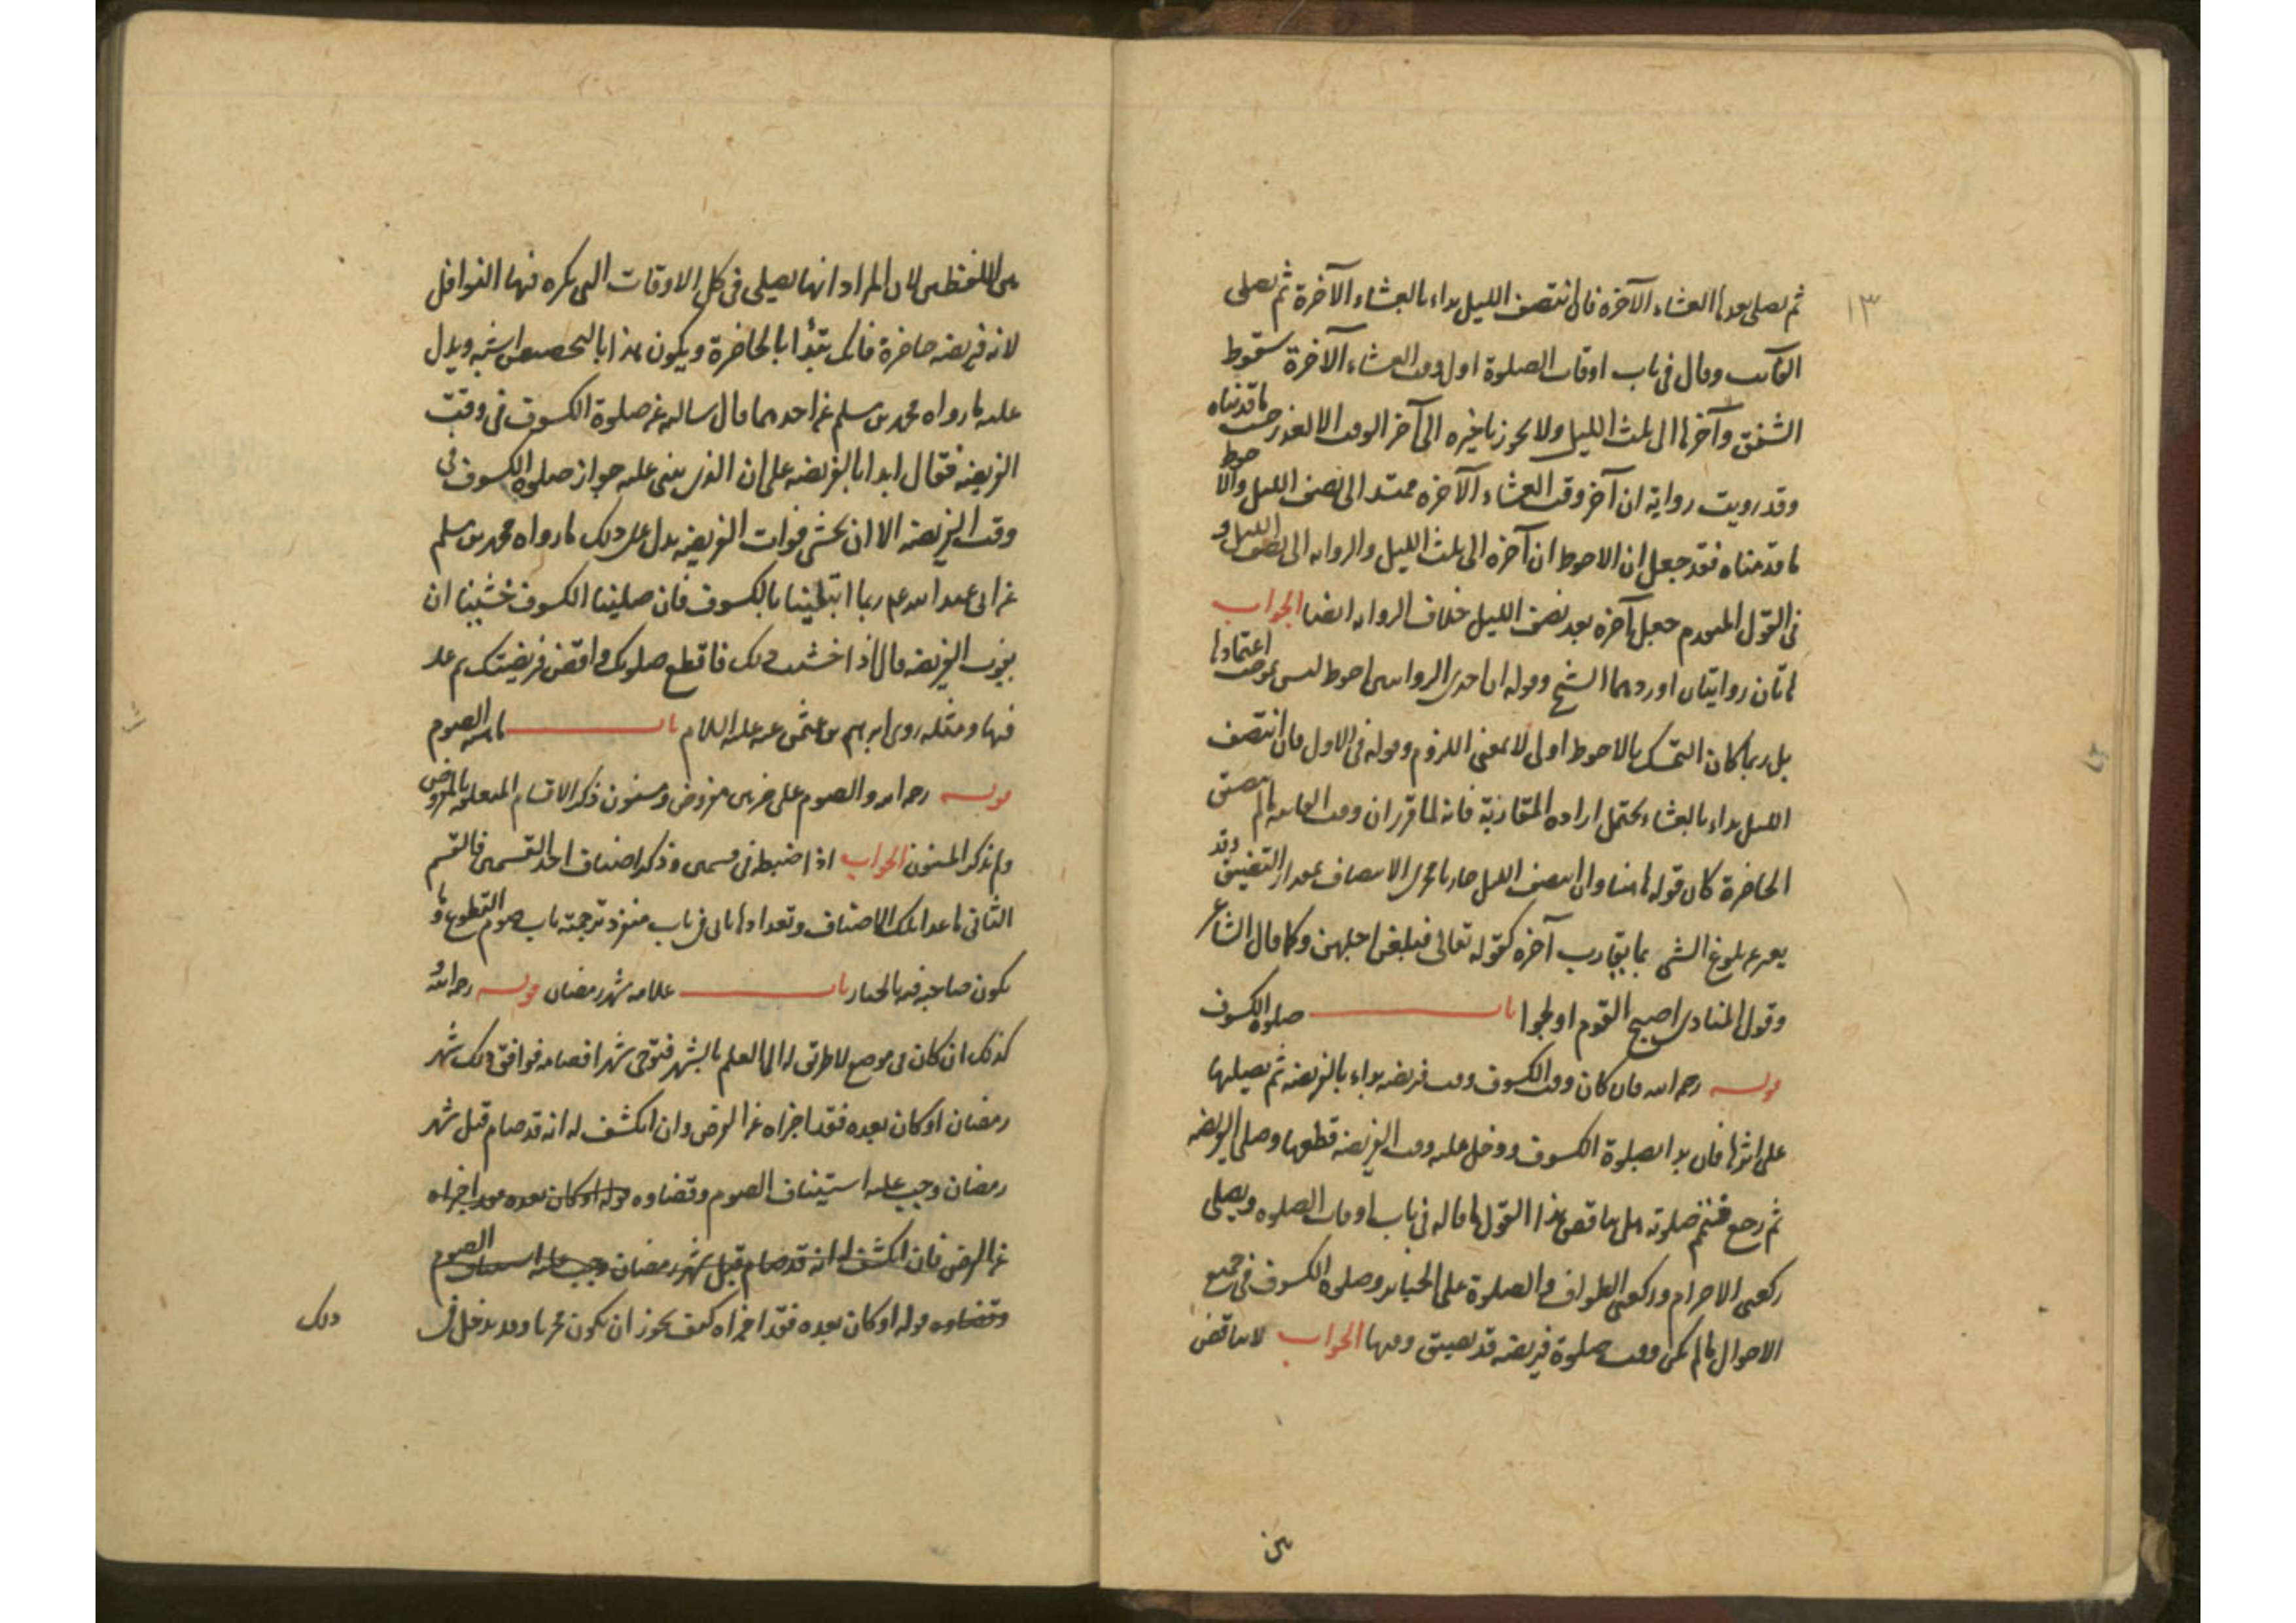 ١٣
ثم يصلى بعدها العشاء الآخرة فان انتصف الليل بداء بالعشاء الآخرة ثم يصلى
الفائت وقال فى باب اوقات الصلوة اول وقت العشاء الآخرة سقوط
الشفق وآخرها الى ثلث الليل ولا يجوز تاخيره الى آخر الوقت الا لعذر حسب ما قدمناه
وقد رويت رواية ان آخر وقت العشاء الآخرة ممتد الى نصف الليل والاحوط
ما قدمناه فقد جعل ان الاحوط ان آخره الى ثلث الليل والرواية الى نصف الليل و
فى القول المتقدم جعل آخره بعد نصف الليل خلاف الرواية ايضا الجواب
هاتان روايتان اوردهما الشيخ وقوله ان احدى الروايتين احوط ليس بموجب اعتمادها
بل ربما كان التمسك بالاحوط اولى لا بمعنى اللزوم وقوله فى الاول فان انتصف
الليل بداء بالعشاء يحتمل ارادة المقاربة فانه لما قرر ان وقت الفائتة ما لم يتضيق
الحاضرة كان قوله هاهنا وان انتصف الليل جاريا مجرى الانتصاف بمقدار التضييق وقد
يعبر عن بلوغ الشى بما يقارب آخره كقوله تعالى فبلغن اجلهن وكما قال الشاعر
وقول المنادى اصبح القوم اولجوا باب صلوة الكسوف
قوله رحمه الله فان كان وقت الكسوف وقت فريضة بداء بالفريضة ثم يصليها
على اثرها فان بدا بصلوة الكسوف ودخل عليه وقت الفريضة قطعها وصلى الفريضة
ثم رجع فتمم صلوته هل يناقض هذا القول ما قاله فى باب اوقات الصلوة ويصلى
ركعتى الاحرام وركعتى الطواف والصلوة على الجنائز وصلوة الكسوف فى جميع
الاحوال ما لم يكن وقت صلوة فريضة قد تضيق وقتها الجواب لا يناقض
بين
بين اللفظين لان المراد انها يصلى فى كل الاوقات التى يكره فيها النوافل
لانه فريضة حاضرة فانك تبتدأ بالحاضرة ويكون هذا بالتخصيص اشبه ويدل
عليه ما رواه محمد بن مسلم عن احدهما قال سالته عن صلوة الكسوف فى وقت
الفريضة فقال ابدا بالفريضة على ان الذى بنى عليه جواز صلوة الكسوف فى
وقت الفريضة الا ان يخشى فوات الفريضة يدل على ذلك ما رواه محمد بن مسلم
عن ابى عبد الله عم ربما ابتلينا بالكسوف فان صلينا الكسوف خشينا ان
يفوت الفريضة قال اذا خشيت ذلك فاقطع صلوتك واقض فريضتك ثم عد
فيها ومثله روى ابراهيم بن عثمن عنه عليه السلام باب ماهية الصوم
قوله رحمه الله والصوم على ضربين مفروض ومسنون ذكر الاقسام المتعلقة بالمفروض
ولم يذكر المسنون الجواب اذا ضبط فى قسمين وذكر اصناف احد القسمين فالقسم
الثانى ما عدا تلك الاصناف وتعدادها ياتى فى باب منفرد ترجمته باب صوم التطوع وما
يكون صاحبه فيه بالخيار باب علامة شهر رمضان قوله رحمه الله و
كذلك ان كان فى موضع لا طريق له الى العلم بالشهر فتوخى شهرا فصامه فوافق ذلك شهر
رمضان او كان بعده فقد اجزاه عن الفرض وان انكشف له انه قد صام قبل شهر
رمضان وجب عليه استيناف الصوم وقضاوه قوله او كان بعده فقد اجزاه
عن الفرض فان انكشف له انه قد صام قبل شهر رمضان وجب عليه استيناف الصوم
وقضاوه قوله او كان بعده فقد اجزاه كيف يجوز ان يكون مجزيا وقد يدخل فى
ذلك